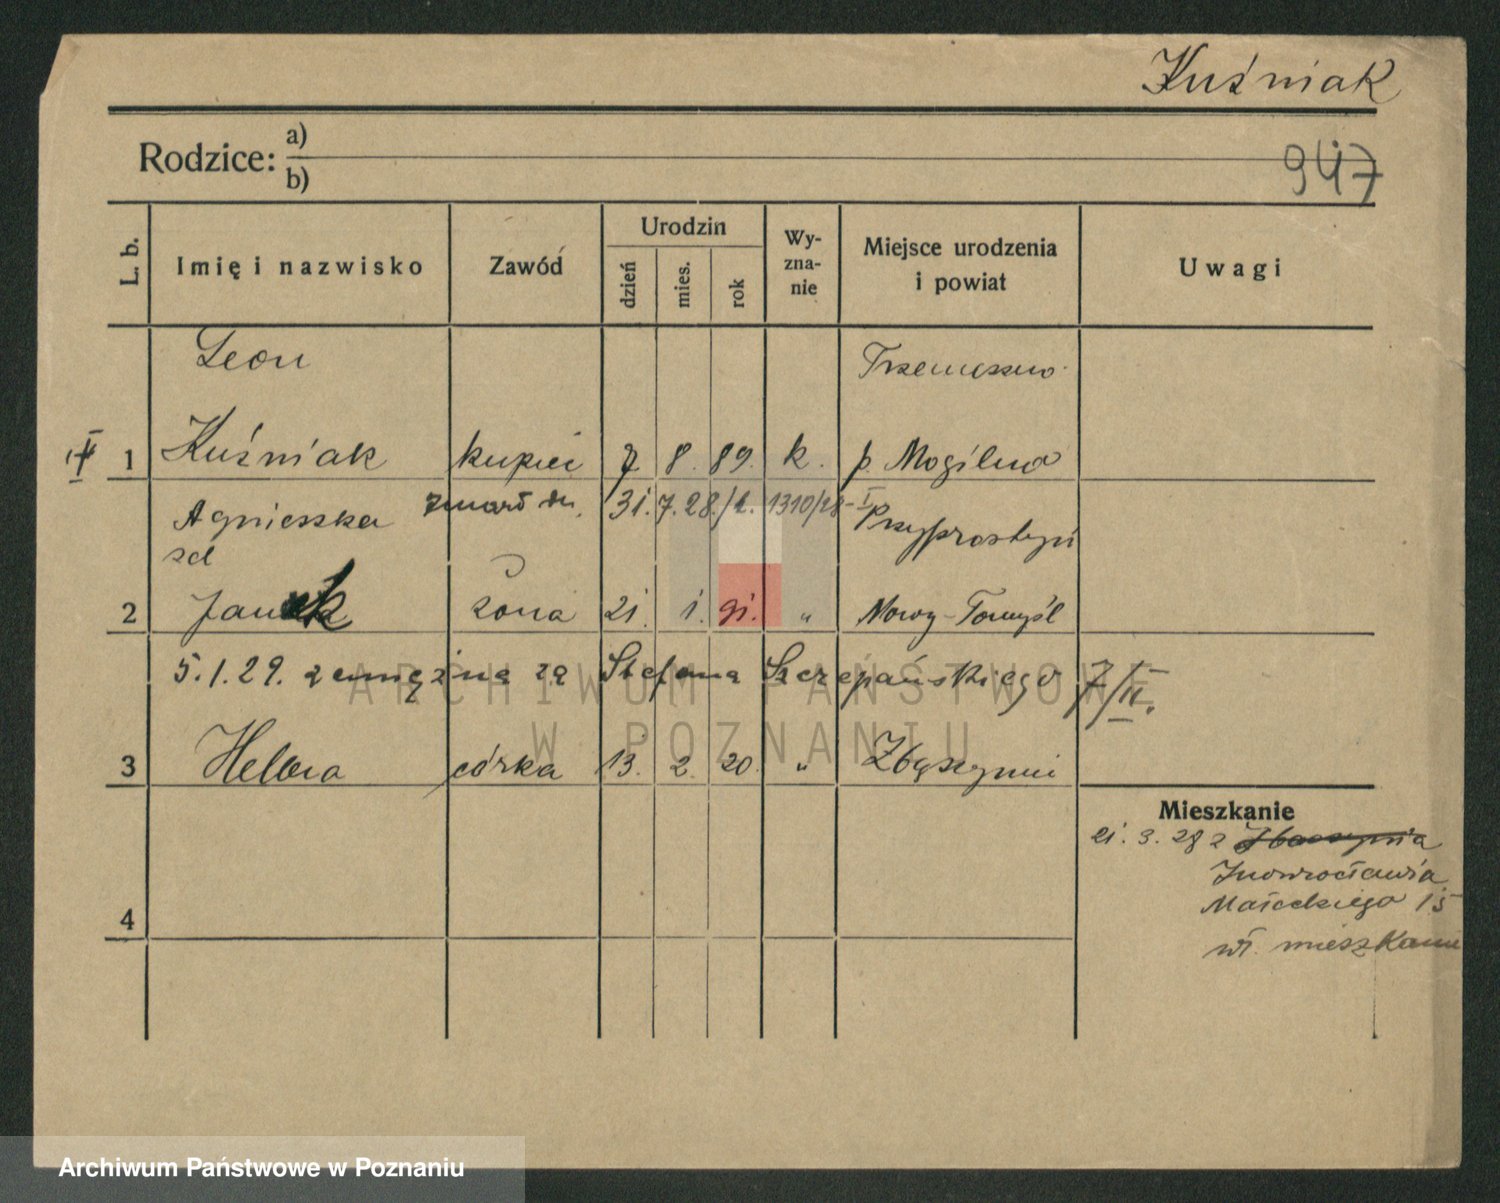 Kuźniak
Rodzice: a)
b)
947
L. b.
Imię i nazwisko
Zawód
Urodzin
dzień
mies.
rok
Wy-
zna-
nie
Miejsce urodzenia
i powiat
Uwagi
Leon
Trzemeszno
1 Kuźniak kupiec 7. 8. 89. k. p. Mogilno
Agnieszka zmarł dn. 31. 7. 28. 1310/28-I Przyprostyń
zd
2 Janek żona 21. 1. 91. " Nowy-Tomyśl
5.1.29. zamężna za Stefana Szczepańskiego 7/II.
3 Helena córka 13. 2. 20. " Zbąszynie
Mieszkanie
21. 3. 28 z Zbąszynia
Inowrocławia
Małeckiego 15
wł. mieszkanie
4
ARCHIWUM PAŃSTWOWE
W POZNANIU
Archiwum Państwowe w Poznaniu